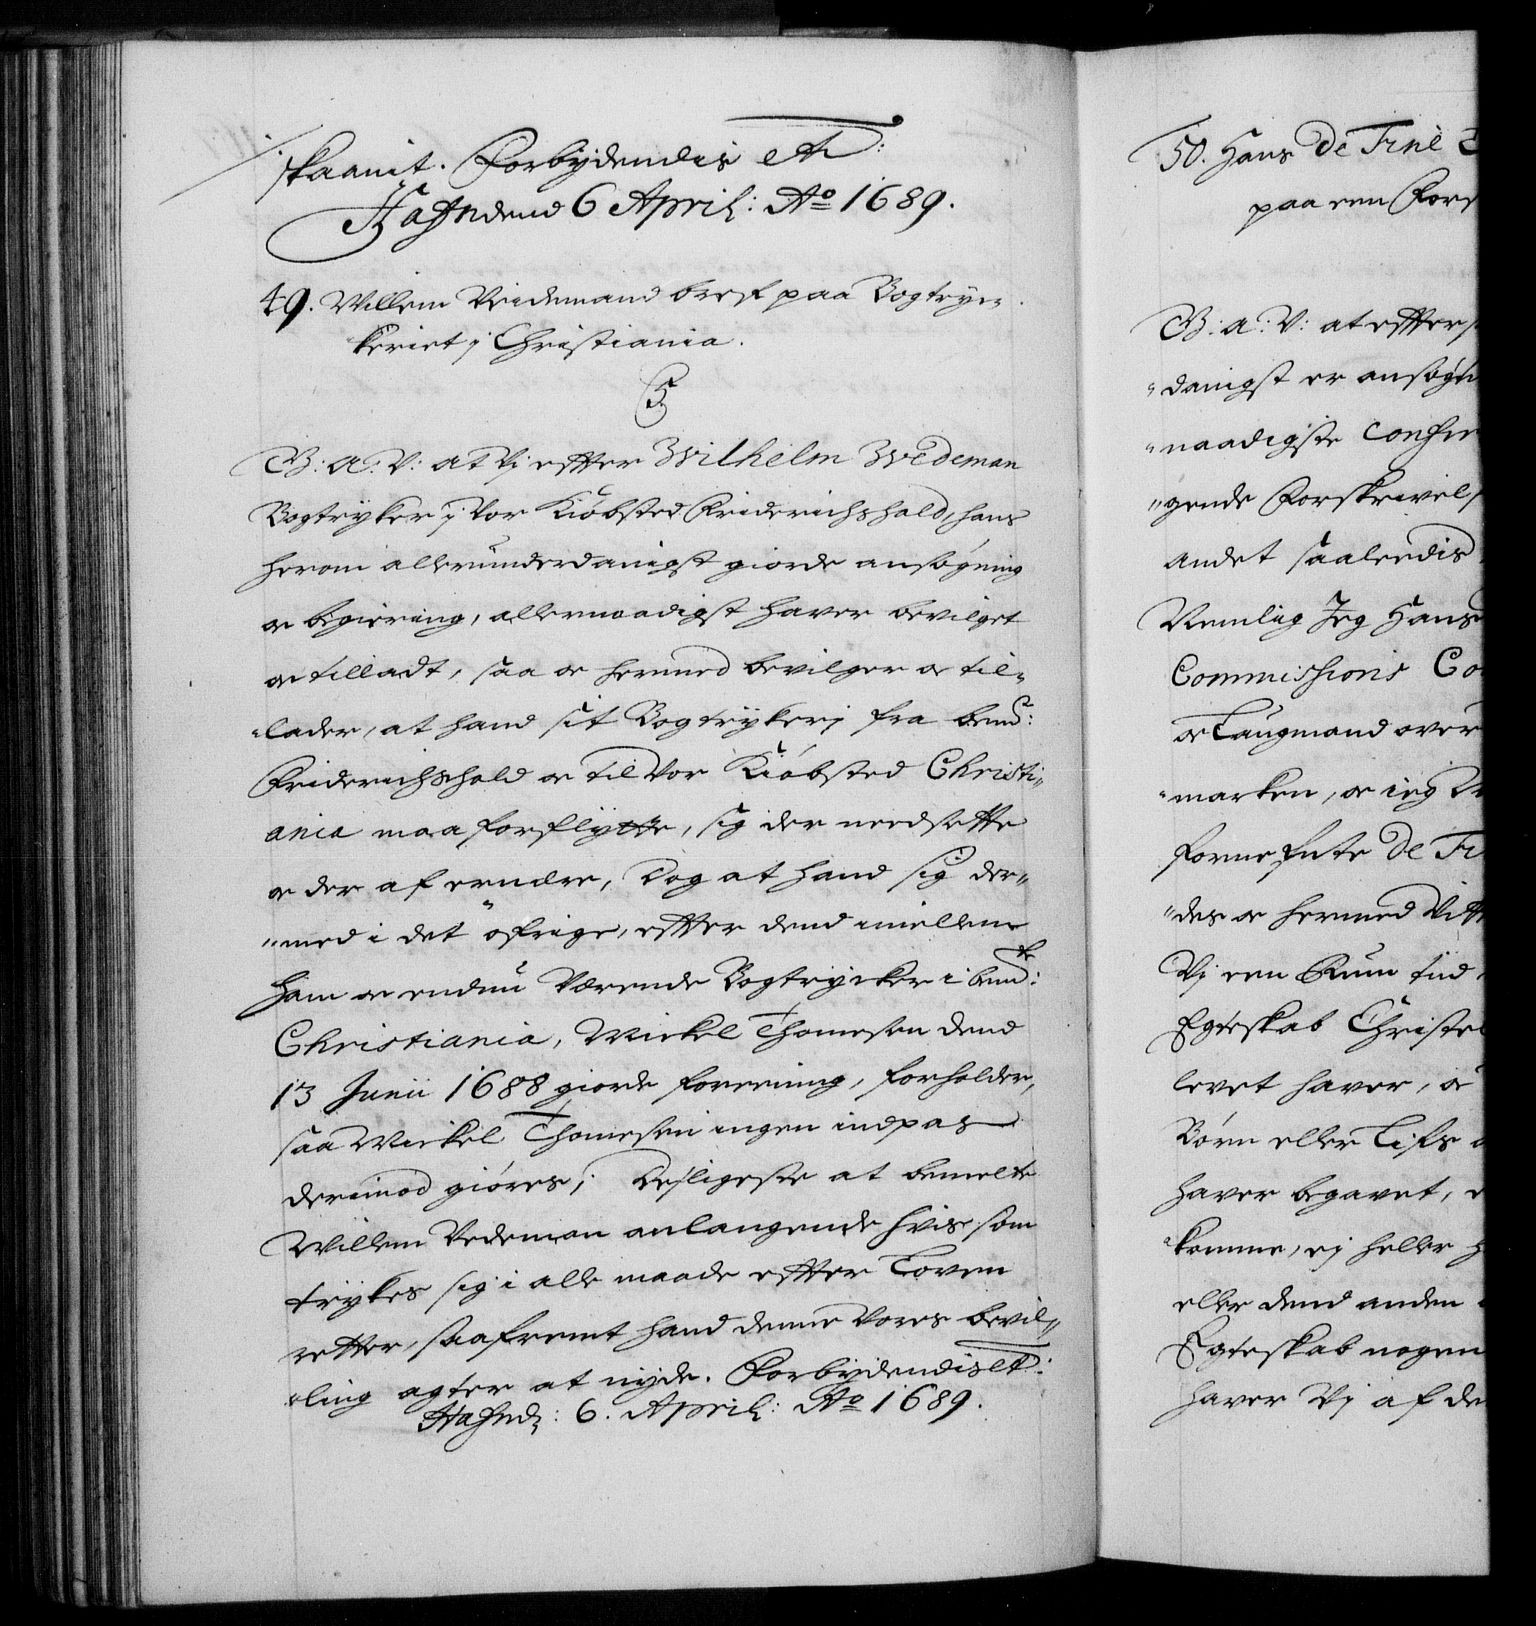 skaanit. Forbydendis etc:
Hafn dend 6 April: Ao 1689.
49. Willem Veidemand bref paa Bogtryc„
keriet i Christiania.
C5
G: a: V: at Vi effter Wilhelm Wedeman
Bogtryker i vor Kiöbsted Friderichshald, hans
herom allerunderdanigst giorde ansøgning
oc begiering, allernaadigst hafver bevilget
oc tilladt, saa oc hermed bevilger oc til„
„lader, at hand sit Bogtrykerj fra bemd:
Friderichshald oc til vor Kiöbsted Christi„
ania maa forflytte, sig der needsette
oc der af ernære, Dog at hand sig der„
„med i det öfrige, effter dend imellem
ham oc endnu værende Bogtrycker i bemd:
Christiania, Mickel Thomesen dend
13 Junii 1688 giorde foreening, forholder,
saa Mickel Thomesen ingen indpas
derimod giöres; Desligeste at bemelte
Willem Vedeman anlangende hvis som
trykes sig i alle maade effter Loven
retter, saafremt hand denne vores bevil„
„ling agter at nyde. Forbydendis etc:
Hafnd: 6. April: Ao 1689.
50. Hans de Fine
paa een Fors
G: a: V: at effter
„danigst er ansøgn
„naadigste Confir
„gende Forskrivels
andet saaleedis
Nemlig Jeg Hans
Commissions Co
oc Laugmand over
„marken, oc ieg
forne fute de Fi
„des oc hermed Vit
Vj een Rum tiid
Egteskab Christel
levet hafver, oc
Børn eller Lifs
hafver begavet,
„komme, ej heller
eller dend anden
Egteskab nogen
hafver Vj af de